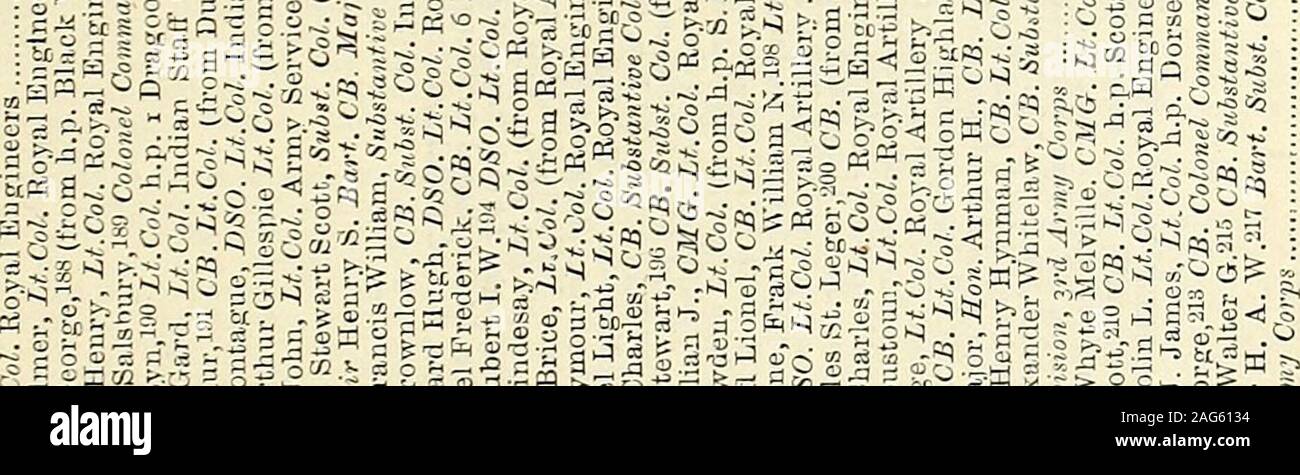 Col. Royal Engineers
mer, Lt.Col. Royal Engine
eorge,188 (from h.p. Black
Henry, Lt.Col. Royal Engin
Salsbury,189 Colonel Comma
yn,190 Lt.Col. h.p. 1 Dragoo
Gard, Lt.Col. Indian Staff
ur,191 CB. Lt.Col. (from Du
ontague, DSO. Lt.Col. India
rthur Gillespie Lt.Col. (from
John, Lt.Col. Army Service
Stewart Scott, Subst. Col. (
ir Henry S. Bart. CB. Maj
rancis William, Substantive
rownlow, CB. Subst. Col. In
ard Hugh, DSO. Lt.Col. Ro
el Frederick. CB. Lt.Col. 6
ubert I. W.194 DSO. Lt.Col.
indesay, Lt.Col. (from Roy
Brice, Lt.Col. (from Royal A
ymour, Lt.Col. Royal Engin
el Light, Lt.Col. Royal Engi
Charles, CB. Substantive Col
tewart,196 CB. Subst. Col. (f
lian J., CMG. Lt.Col. Roya
wden, Lt.Col. (from h.p. S.
d Lionel, CB. Lt.Col. Royal
ne, Frank William N.198 Lt
SO. Lt.Col. Royal Artillery
les St. Leger,200 CB. (from
harles, Lt. Col. Royal Engin
ustour, Lt.Col. Royal Artill
ge, Lt.Col. Royal Artillery
CB. Lt. Col. Gordon Highla
ajor, Hon. Arthur H., CB. L
Henry Hynman, CB. Lt.Col
xander Whitelaw, CB. Substa
ision, 3rd Army Corps
Whyte Melville. CMG. Lt.Co
ott,210 CB. Lt. Col. h.p Scot
olin L. Lt.Col. Royal Engine
J. James, Lt.Col. h.p. Dorse
orge,213 CB. Colonel Comman
Walter G 215 CB. Substantive
H. A. W.217 Bart. Subst. Co
my Corps
alamy
Image ID: 2AG6134
www.alamy.com